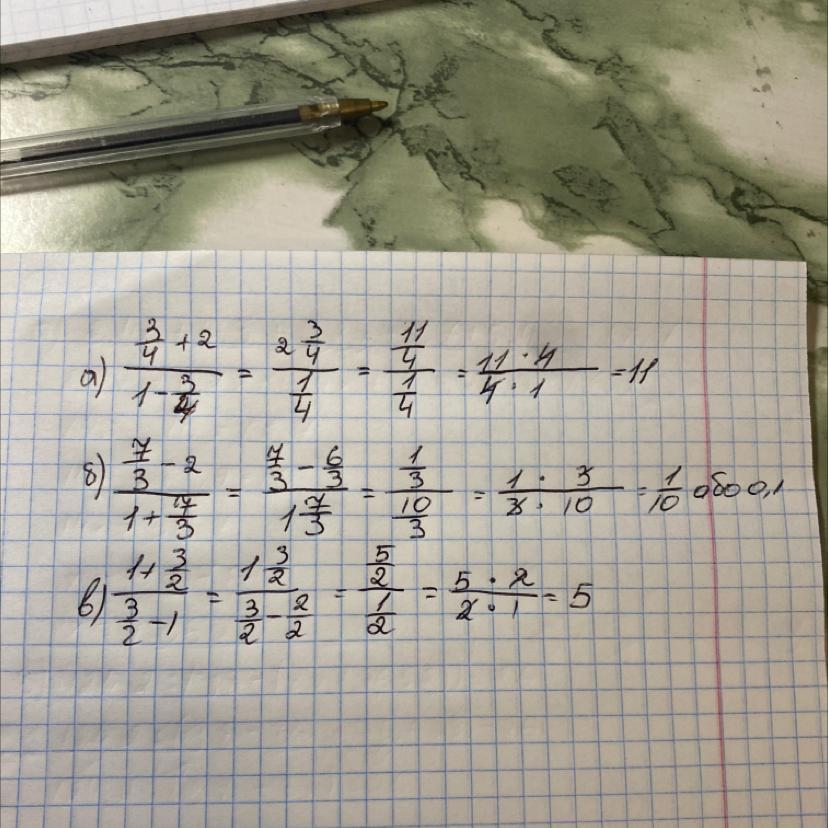 а) (3/4 + 2)/(1 - 3/4) = (2 3/4)/(1/4) = (11/4)/(1/4) = (11 · 4)/(4 · 1) = 11
б) (7/3 - 2)/(1 + 7/3) = (7/3 - 6/3)/(1 7/3) = (1/3)/(10/3) = (1 · 3)/(3 · 10) = 1/10 або 0,1
в) (1 + 3/2)/(3/2 - 1) = (1 3/2)/(3/2 - 2/2) = (5/2)/(1/2) = (5 · 2)/(2 · 1) = 5